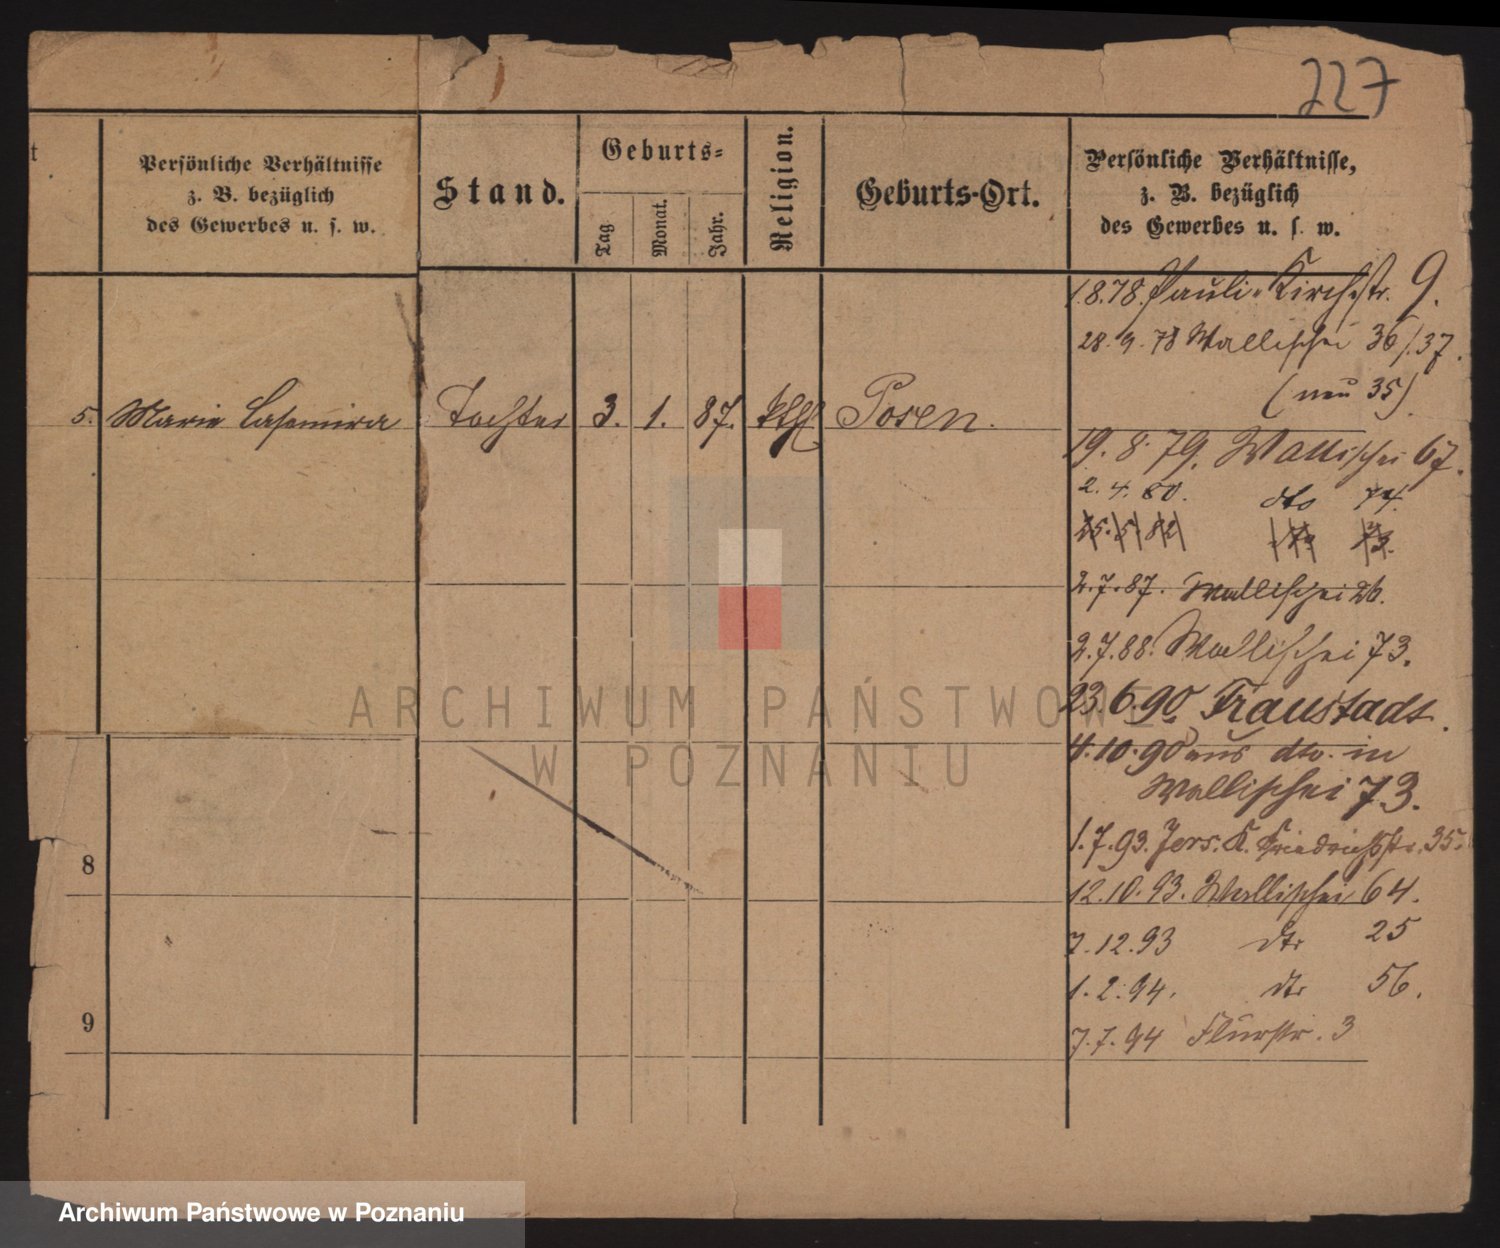 227
t
Persönliche Verhältnisse
z. B. bezüglich
des Gewerbes u. s. w.
Stand.
Geburts-
Tag
Monat.
Jahr.
Religion.
Geburts-Ort.
Persönliche Verhältnisse,
z. B. bezüglich
des Gewerbes u. s. w.
1.8.78. Pauli-Kirchstr. 9.
28.9.78 Wallischei 36/37.
(neu 35).
5. Marie Casemira Tochter 3. 1. 87. kth Posen.
19.8.79. Wallischei 67.
2.4.80. dto 74.
25.5.82 dto 73.
2.7.87. Wallischei 26.
2.7.88. Wallischei 73.
23.6.90. Fraustadt.
4.10.90 aus dto. in
Wallischei 73.
1.7.93. Jers. K. Friedrichstr. 35.
12.10.93. Wallischei 64.
7.12.93 dto 25
1.2.94. dto 56.
7.7.94 Flurstr. 3
8
9
ARCHIWUM PAŃSTWOWE
W POZNANIU
Archiwum Państwowe w Poznaniu